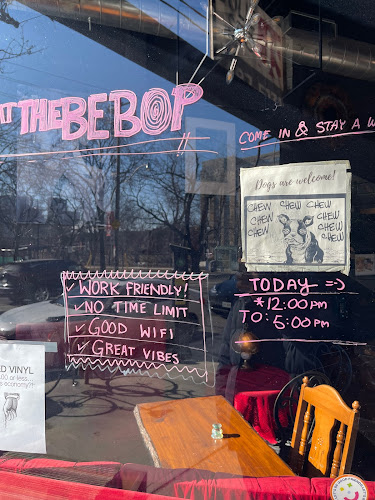 AT THE BEBOP
COME IN & STAY A
Dogs are welcome!
CHEW CHEW CHEW
CHEW CHEW
CHEW CHEW
CHEW CHEW
CHEW
TODAY =>
*12:00PM
TO: 5:00PM
✓ WORK FRIENDLY!
✓ NO TIME LIMIT
✓ GOOD WIFI
✓ GREAT VIBES
D VINYL
or less...
economy?!